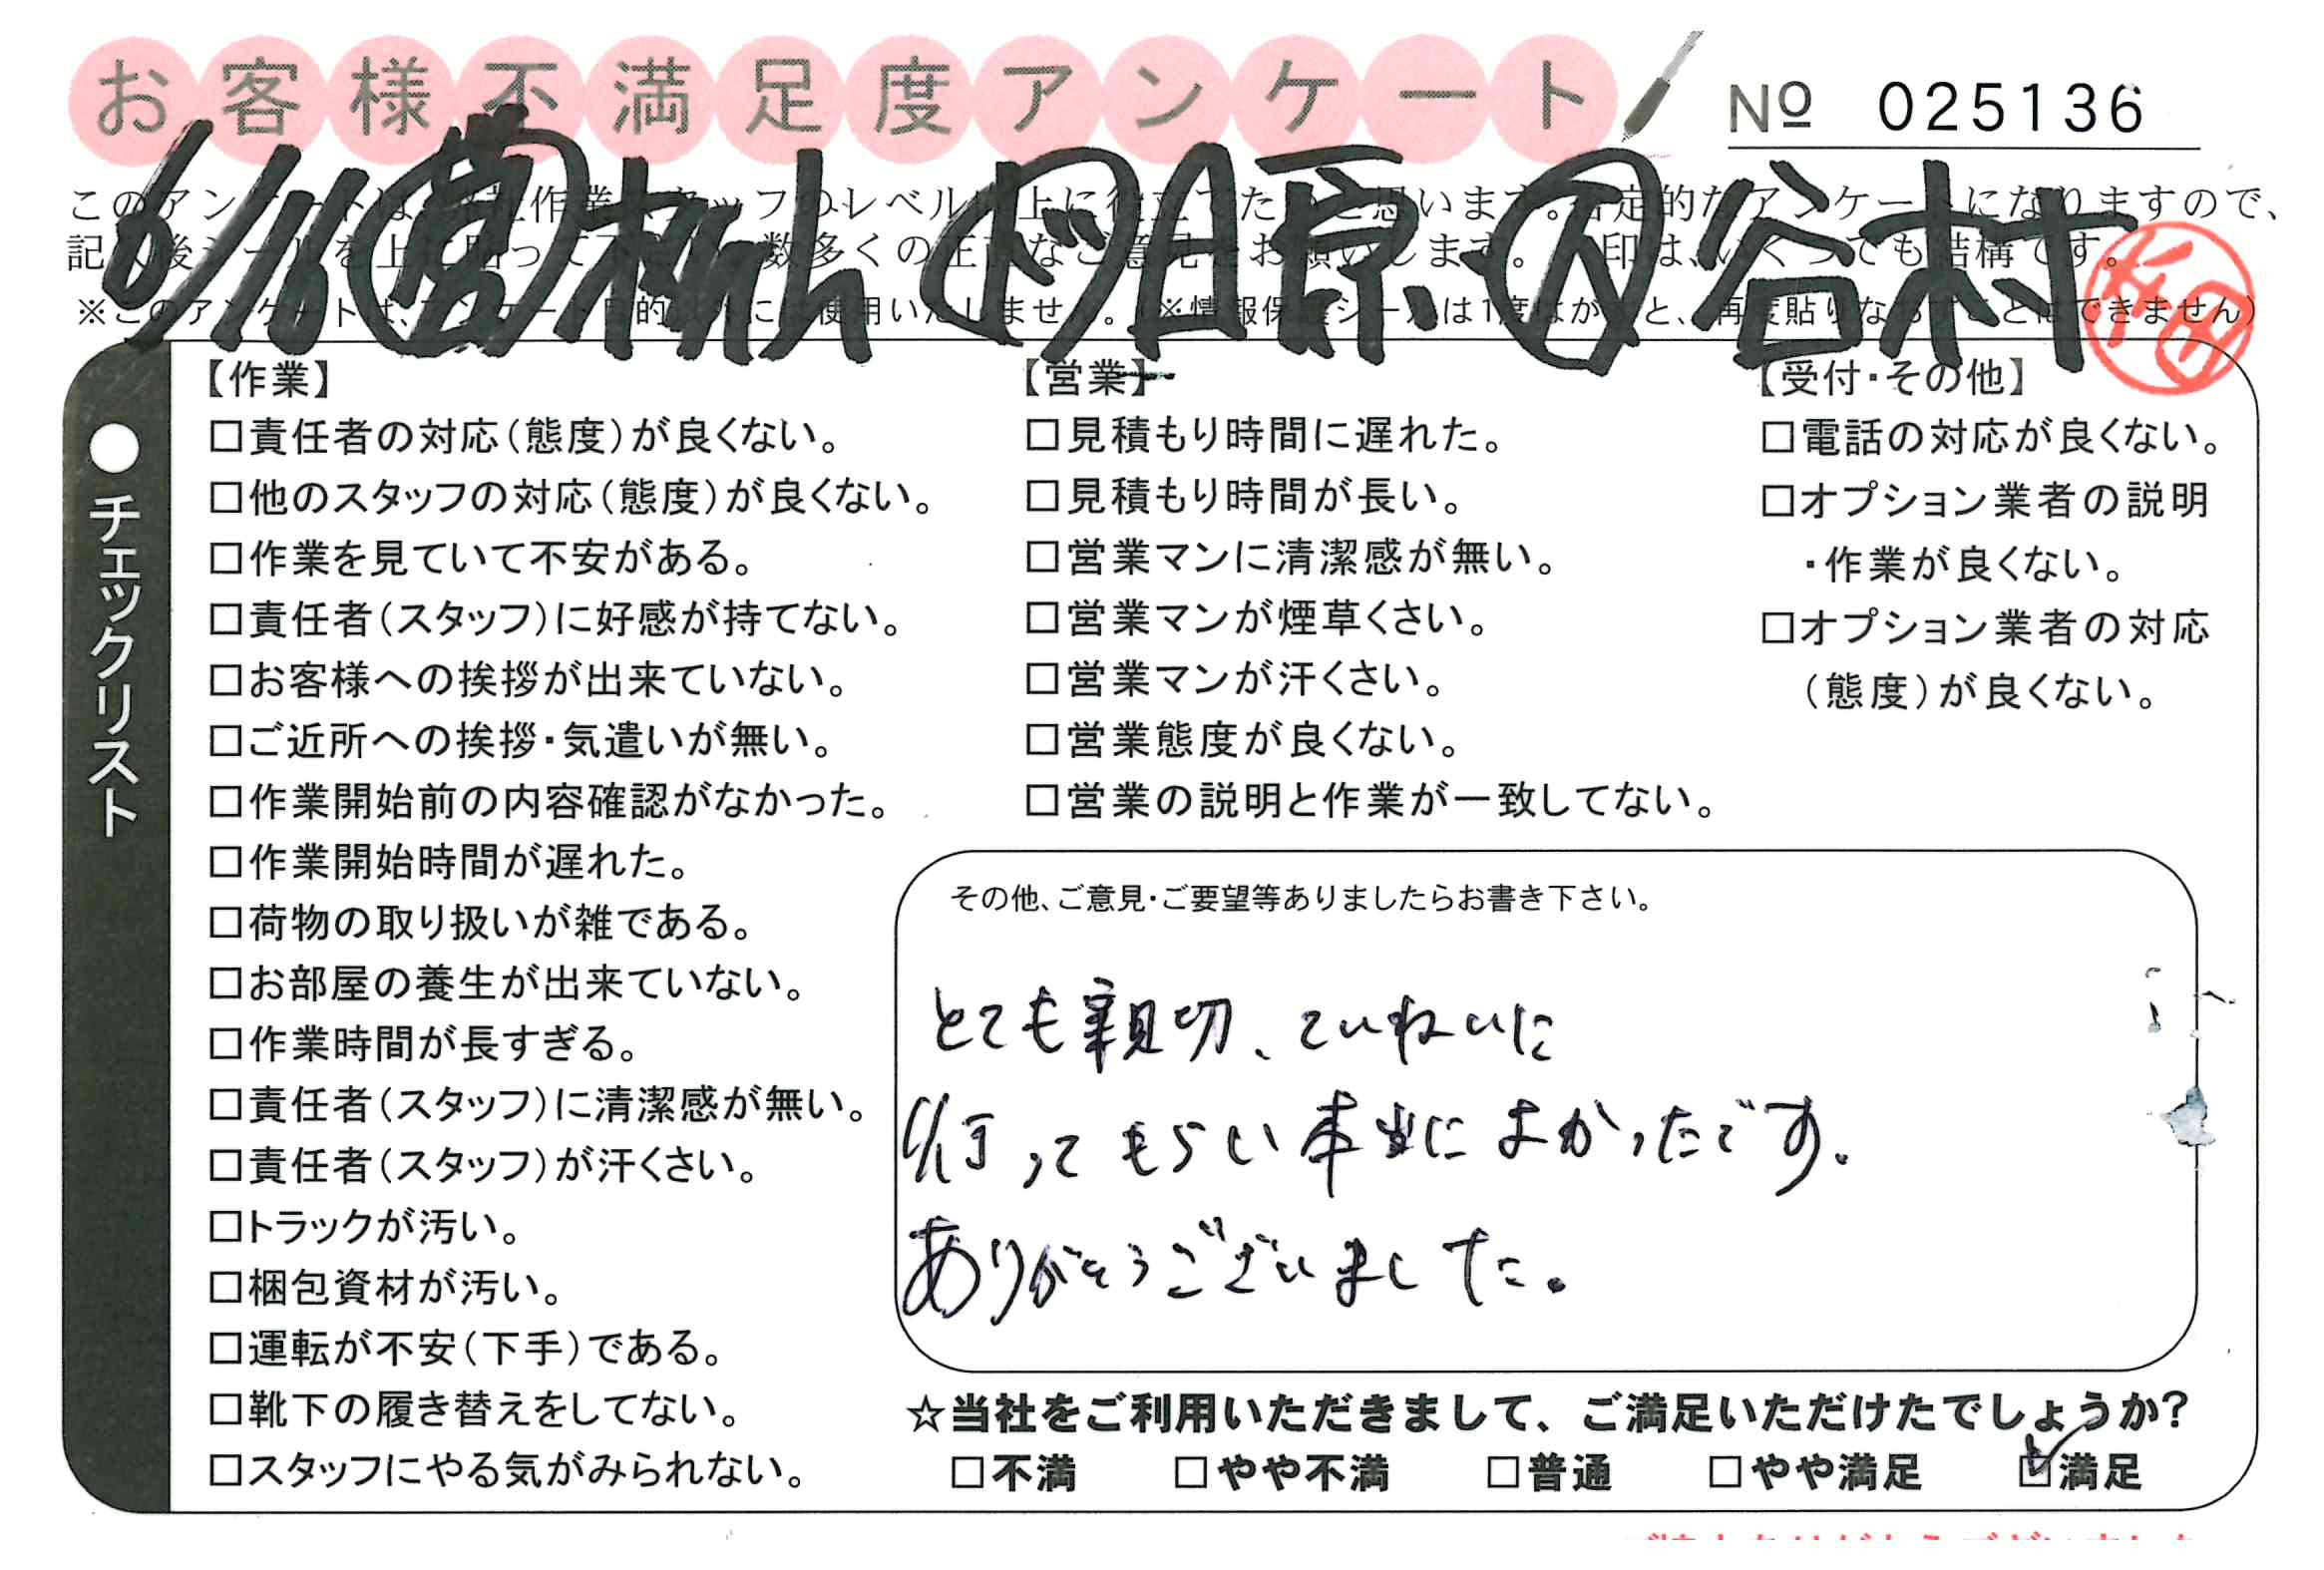 お客様不満足度アンケート
No 025136
6/16 営 柳山 ド 日原・ス 谷村
このアンケートは、弊社作業スタッフのレベル向上に役立てたいと思います。否定的なアンケートになりますので、
記入後シールを上に貼って下さい。数多くの正直なご意見をお願いします。 印は、いくつでも結構です。
※このアンケートは、アンケート目的以外には使用いたしません。(※情報保護シールは1度はがすと、再度貼りなおすことはできません)
●チェックリスト
【作業】
□責任者の対応(態度)が良くない。
□他のスタッフの対応(態度)が良くない。
□作業を見ていて不安がある。
□責任者(スタッフ)に好感が持てない。
□お客様への挨拶が出来ていない。
□ご近所への挨拶・気遣いが無い。
□作業開始前の内容確認がなかった。
□作業開始時間が遅れた。
□荷物の取り扱いが雑である。
□お部屋の養生が出来ていない。
□作業時間が長すぎる。
□責任者(スタッフ)に清潔感が無い。
□責任者(スタッフ)が汗くさい。
□トラックが汚い。
□梱包資材が汚い。
□運転が不安(下手)である。
□靴下の履き替えをしてない。
□スタッフにやる気がみられない。
【営業】
□見積もり時間に遅れた。
□見積もり時間が長い。
□営業マンに清潔感が無い。
□営業マンが煙草くさい。
□営業マンが汗くさい。
□営業態度が良くない。
□営業の説明と作業が一致してない。
【受付・その他】
□電話の対応が良くない。
□オプション業者の説明
・作業が良くない。
□オプション業者の対応
(態度)が良くない。
その他、ご意見・ご要望等ありましたらお書き下さい。
とても親切、ていねいに
行ってもらい本当によかったです。
ありがとうございました。
☆当社をご利用いただきまして、ご満足いただけたでしょうか?
□不満 □やや不満 □普通 □やや満足 ☑満足